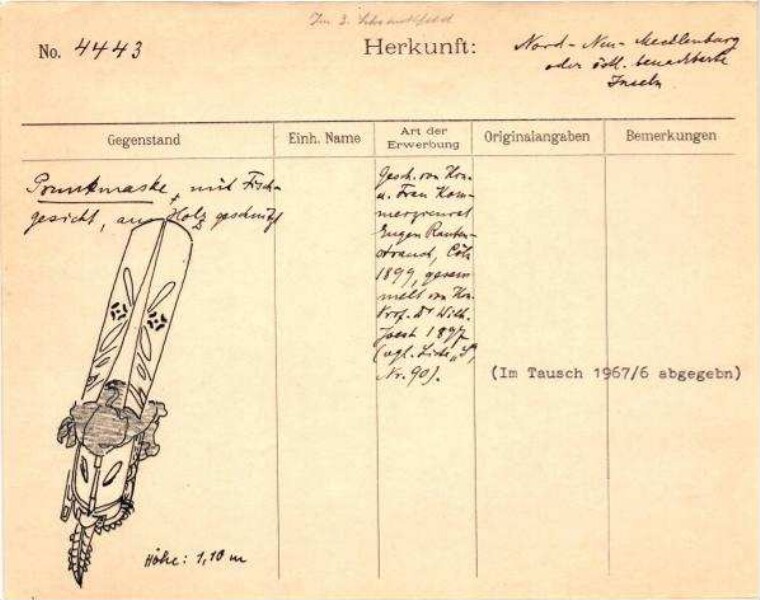 Im 3.
No. 4443
Herkunft:
Nord-Neu-Mecklenburg
oder östl. benachbarte
Inseln
Gegenstand
Einh. Name
Art der
Erwerbung
Originalangaben
Bemerkungen
Prunkmaske, mit Fisch-
gesicht, aus Holz geschnitzt
Höhe: 1,10 m
Gesch. von Hrn.
u. Frau Kom-
merzienrat
Eugen Rauten-
strauch, Cöln
1899, gesam
melt von Hrn.
Prof. Dr Wilh.
Joest 1897
(vgl. Liste „S",
Nr. 90).
(Im Tausch 1967/6 abgegebn)